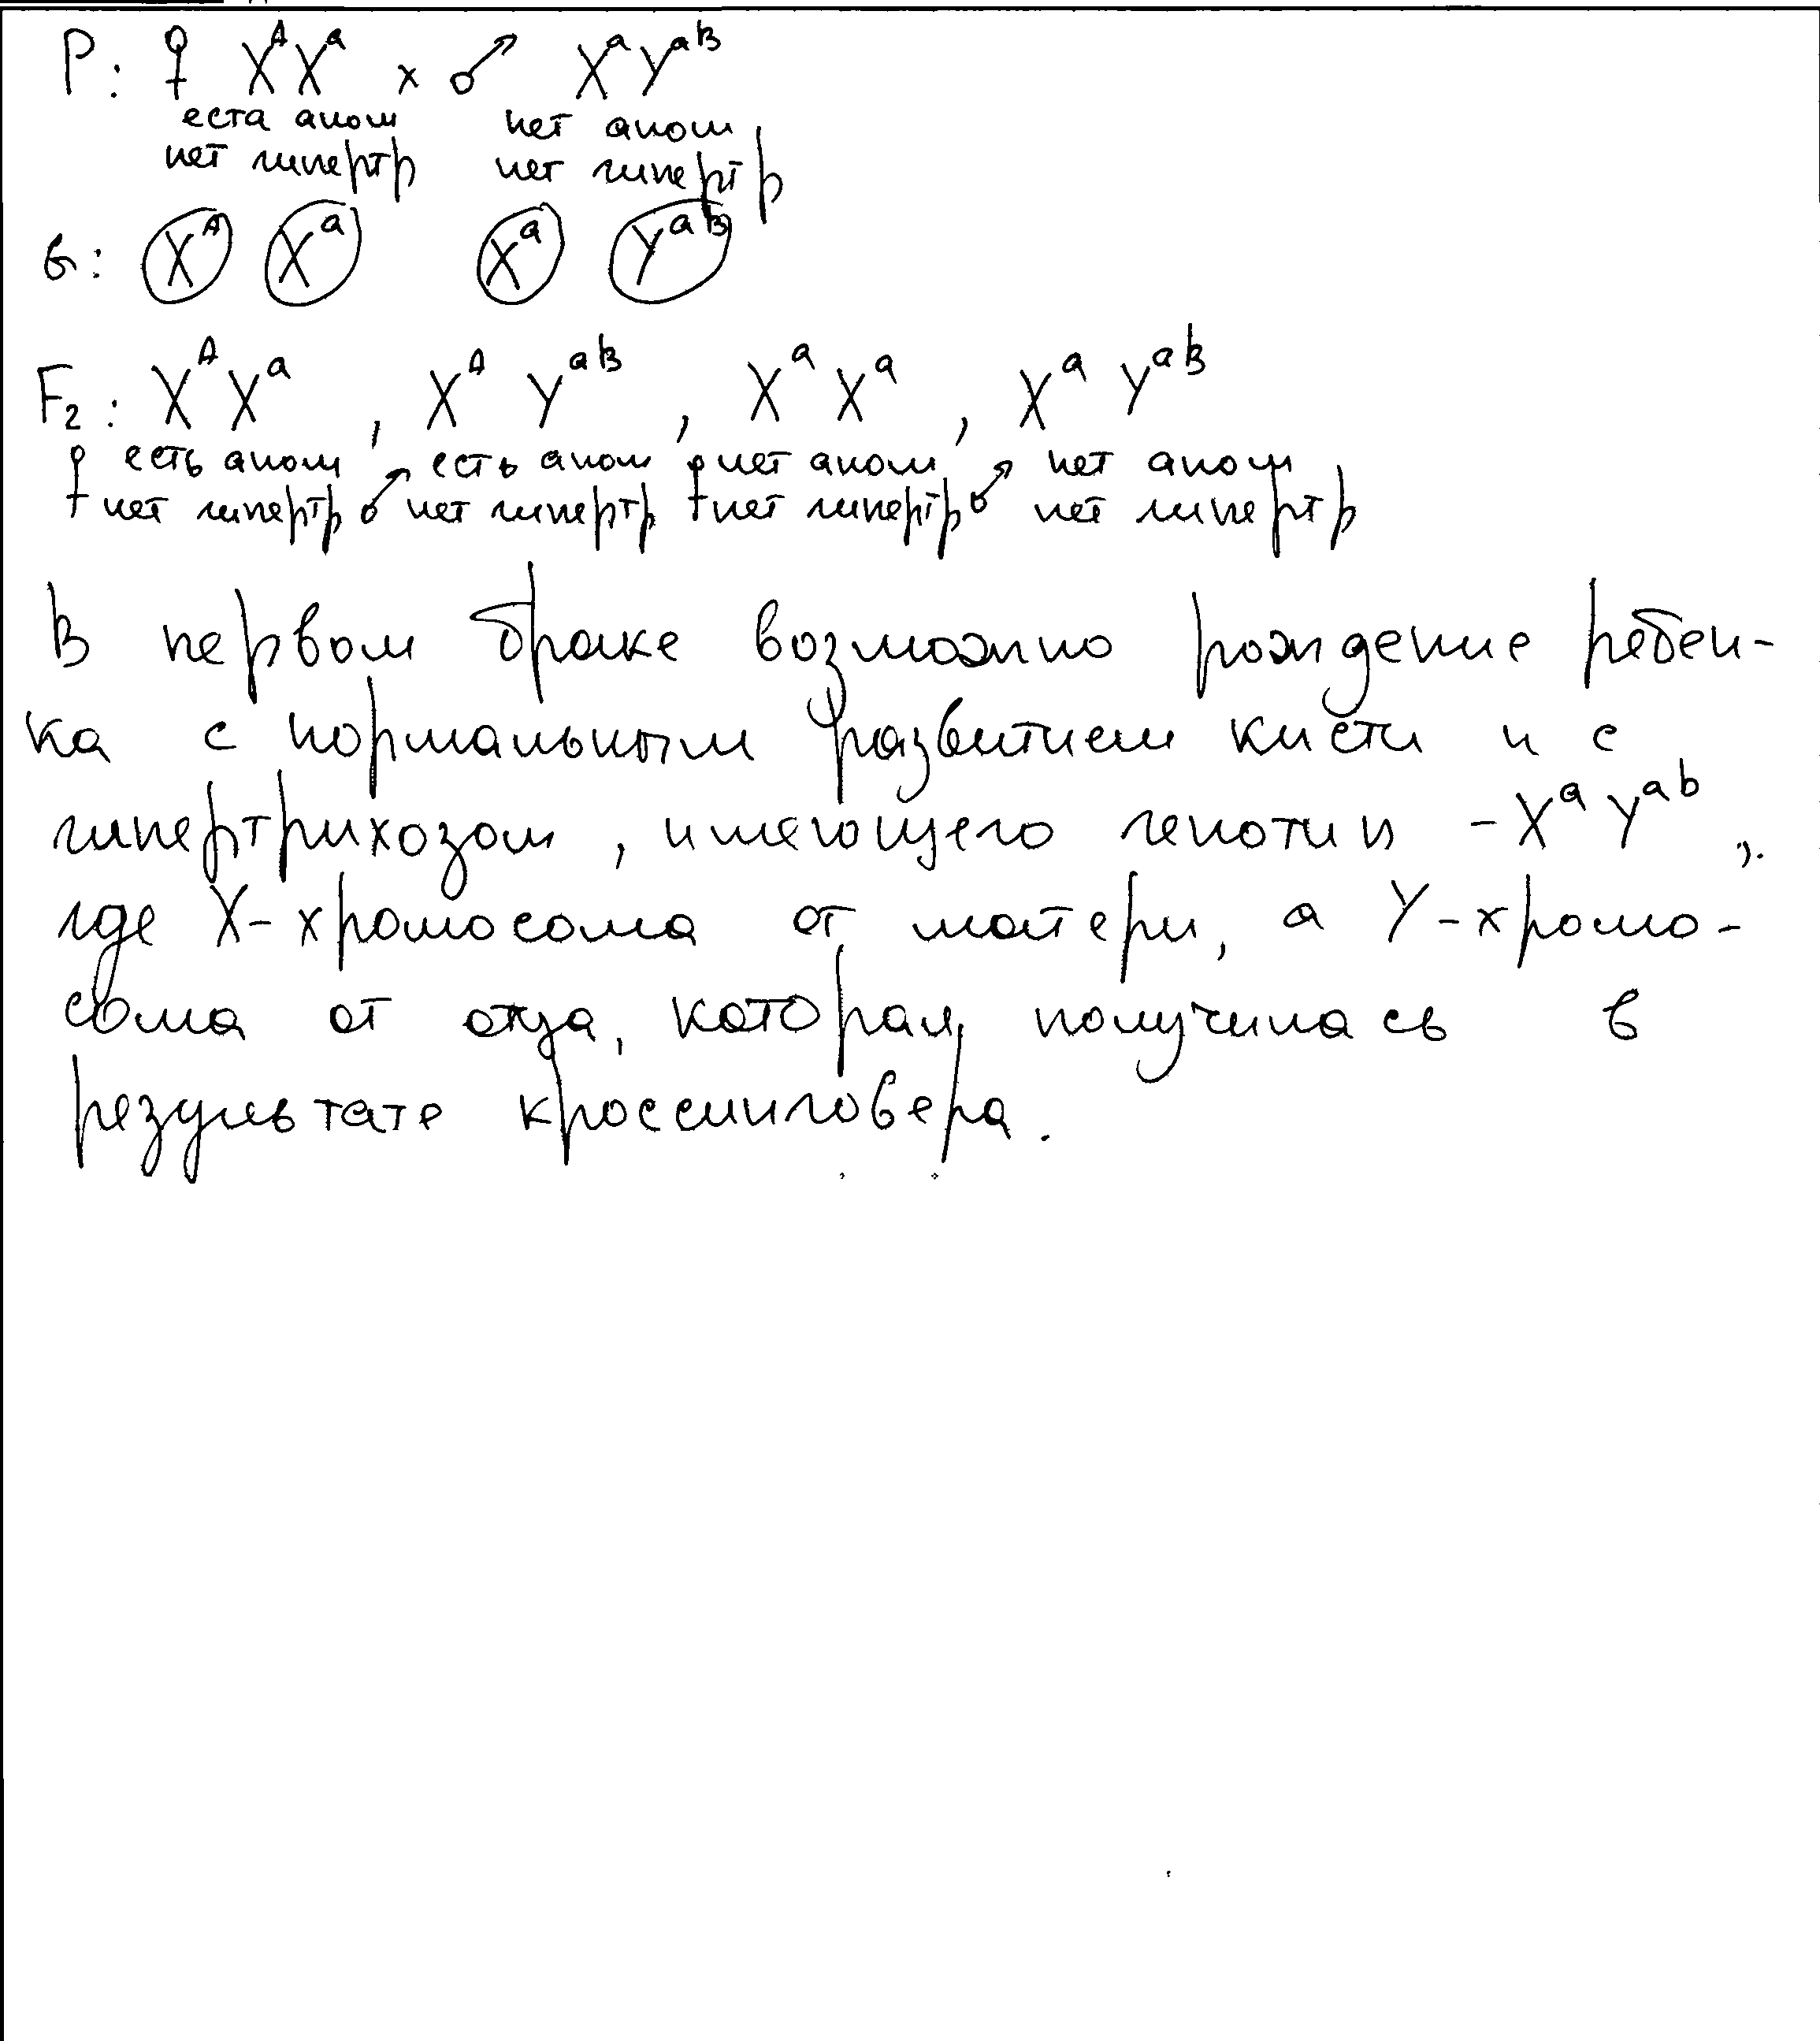 P: ♀ XᴬXᵃ x ♂ XᵃYᵃᴮ
еста аном нет аном
нет гипертр нет гипертр
G: Xᴬ Xᵃ Xᵃ Yᵃᴮ
F₂: XᴬXᵃ, XᴬYᵃᴮ, XᵃXᵃ, XᵃYᵃᴮ
♀ есть аном ♂ есть аном ♀ нет аном ♂ нет аном
нет гипертр нет гипертр нет гипертр нет гипертр
В первом браке возможно рождение ребен-
ка с нормальным развитием кисти и с
гипертрихозом, имеющего генотип - XᵃYᵃᵇ,
где X-хромосома от матери, а Y-хромо-
сома от отца, которая получилась в
результате кроссинговера.